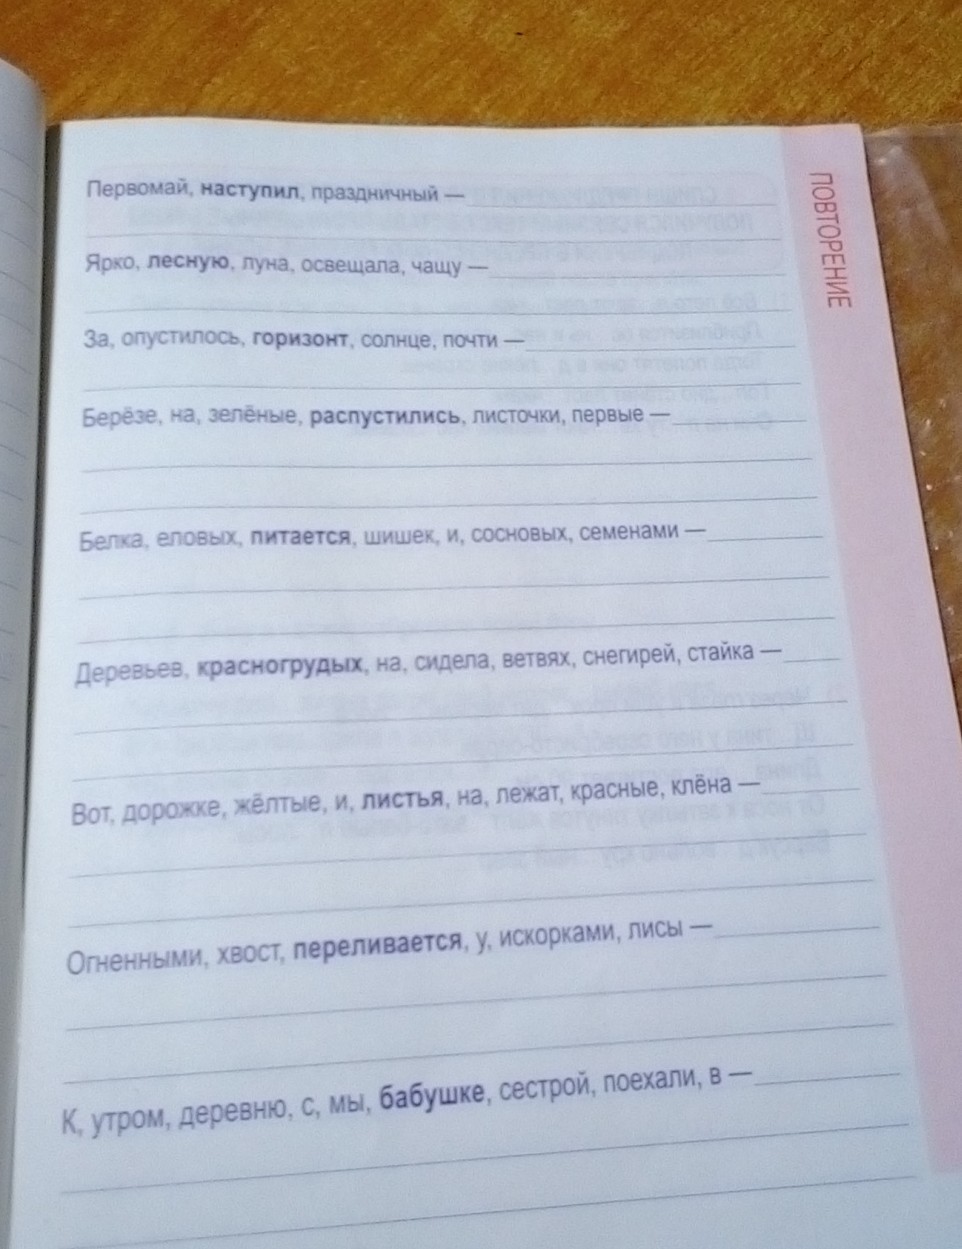 ПОВТОРЕНИЕ
Первомай, наступил, праздничный —
Ярко, лесную, луна, освещала, чащу —
За, опустилось, горизонт, солнце, почти —
Берёзе, на, зелёные, распустились, листочки, первые —
Белка, еловых, питается, шишек, и, сосновых, семенами —
Деревьев, красногрудых, на, сидела, ветвях, снегирей, стайка —
Вот, дорожке, жёлтые, и, листья, на, лежат, красные, клёна —
Огненными, хвост, переливается, у, искорками, лисы —
К, утром, деревню, с, мы, бабушке, сестрой, поехали, в —